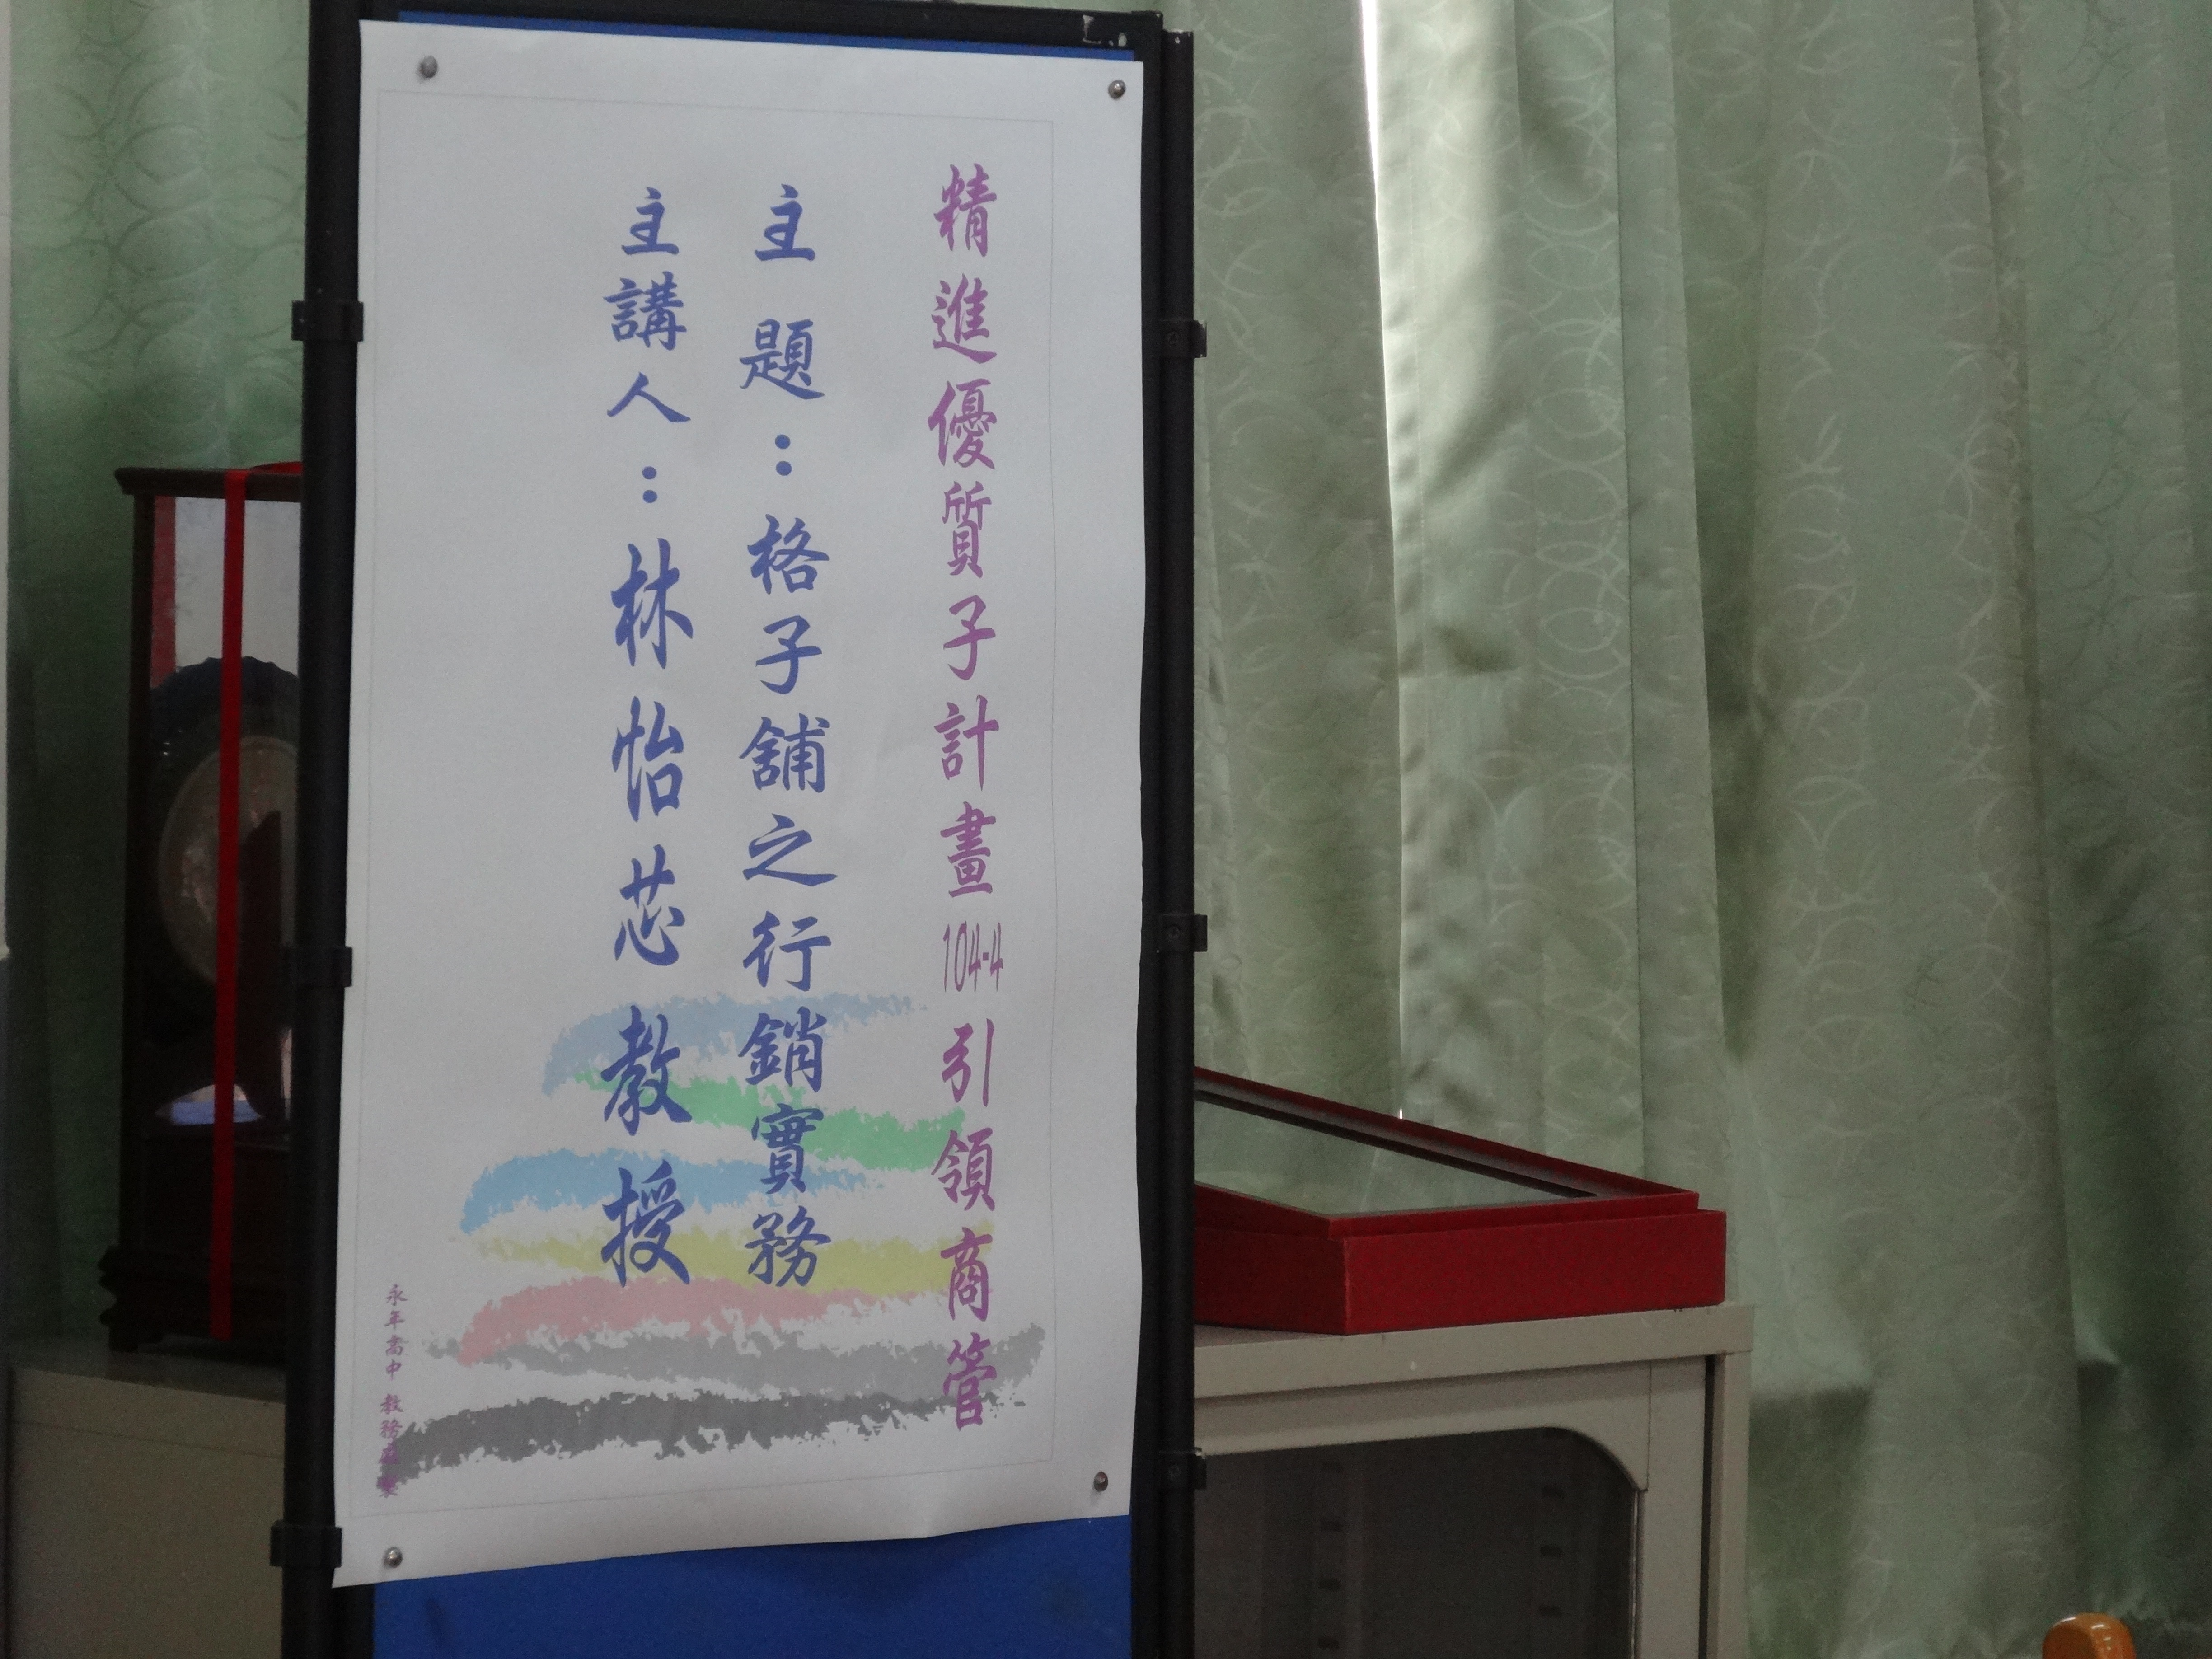 精進優質子計畫104-4引領商管
主題：格子舖之行銷實務
主講人：林怡芯教授
永年高中 教務處 製